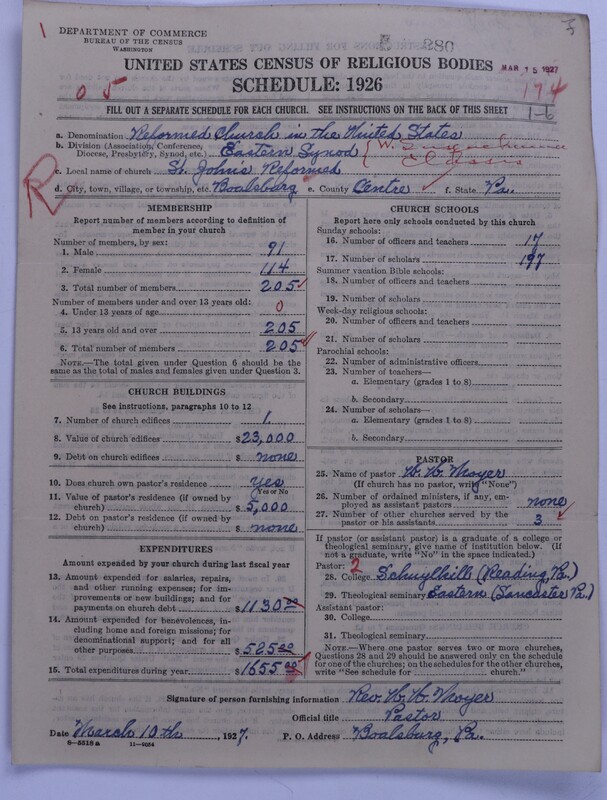 1
DEPARTMENT OF COMMERCE
BUREAU OF THE CENSUS
WASHINGTON
UNITED STATES CENSUS OF RELIGIOUS BODIES
MAR 15 1927
SCHEDULE: 1926
0 5
174
FILL OUT A SEPARATE SCHEDULE FOR EACH CHURCH. SEE INSTRUCTIONS ON THE BACK OF THIS SHEET
1-6
a. Denomination Reformed Church in the United States
b. Division (Association, Conference, Diocese, Presbytery, Synod, etc.) Eastern Synod { W. Susquehanna Classis
c. Local name of church St. Johns Reformed
R
d. City, town, village, or township, etc. Boalsburg e. County Centre f. State Pa.
MEMBERSHIP
Report number of members according to definition of member in your church
Number of members, by sex:
1. Male 91
2. Female 114
3. Total number of members 205
Number of members under and over 13 years old:
4. Under 13 years of age 0
5. 13 years old and over 205
6. Total number of members 205
NOTE.—The total given under Question 6 should be the same as the total of males and females given under Question 3.
CHURCH BUILDINGS
See instructions, paragraphs 10 to 12
7. Number of church edifices 1
8. Value of church edifices $23,000
9. Debt on church edifices $ none
10. Does church own pastor's residence? Yes
Yes or No
11. Value of pastor's residence (if owned by church) $5,000
12. Debt on pastor's residence (if owned by church) $ none
EXPENDITURES
Amount expended by your church during last fiscal year
13. Amount expended for salaries, repairs, and other running expenses; for improvements or new buildings; and for payments on church debt $1130.00
14. Amount expended for benevolences, including home and foreign missions; for denominational support; and for all other purposes $525.00
15. Total expenditures during year $1655.00
CHURCH SCHOOLS
Report here only schools conducted by this church
Sunday schools:
16. Number of officers and teachers 17
17. Number of scholars 197
Summer vacation Bible schools:
18. Number of officers and teachers
19. Number of scholars
Week-day religious schools:
20. Number of officers and teachers
21. Number of scholars
Parochial schools:
22. Number of administrative officers
23. Number of teachers—
a. Elementary (grades 1 to 8)
b. Secondary
24. Number of scholars—
a. Elementary (grades 1 to 8)
b. Secondary
PASTOR
25. Name of pastor W. W. Moyer
(If church has no pastor, write "None")
26. Number of ordained ministers, if any, employed as assistant pastors none
27. Number of other churches served by the pastor or his assistants 3
If pastor (or assistant pastor) is a graduate of a college or theological seminary, give name of institution below. (If not a graduate, write "No" in the space indicated.)
Pastor: 2
28. College Schuylkill (Reading, Pa.)
29. Theological seminary Eastern (Lancaster Pa.)
Assistant pastor:
30. College
31. Theological seminary
NOTE.—Where one pastor serves two or more churches, Questions 28 and 29 should be answered only on the schedule for one of the churches; on the schedules for the other churches, write "See schedule for ____ church."
Signature of person furnishing information Rev. W. W. Moyer
Official title Pastor
Date March 10th, 1927. P. O. Address Boalsburg, Pa.
8-5518 a 11-9264